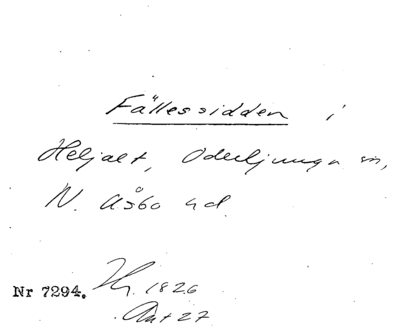 Fällessidden i
Heljalt, Oderljunga sn,
N. Åsbo hd.
Nr 7294. 1826
27